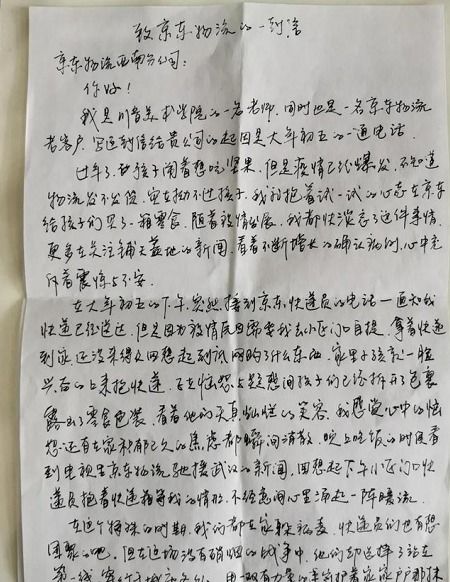 致京东物流的一封信
京东物流西南分公司：
你好！
我是川音美术学院的一名老师，同时也是一名京东物流
老客户，写这封信给贵公司的起因是大年初五的一通电话。
过年了，孩子闹着想吃坚果，但是疫情已经爆发，不知道
物流发不发货，实在拗不过孩子，我抱着试一试的心态在京东
给孩子们买了一箱零食，随着疫情发展，我都快淡忘了这件事情，
更多在关注铺天盖地的新闻，看着不断增长的确认病例，心中充
斥着震惊与不安。
在大年初五的下午，突然接到京东快递员的电话—通知我
快递已经送达，但是因为疫情原因需要我去小区门口自提，拿着快递
到家，还没来得及回想起到底网购了什么东西，家里小孩就一脸
兴奋的上来抱快递，正在恼怒之间孩子们已经拆开了包裹
露出了零食包装，看着他们天真灿烂的笑容，我感觉心中的
还有在家积郁已久的焦虑都瞬间消散，晚上吃饭的时候看
到电视里京东物流驰援武汉的新闻，回想起下午小区门口快
递员抱着快递箱等我的情形，不经意间心里涌起一阵暖流。
在这个特殊的时期，我们都在家躲病毒，快递员们也有想
团聚的吧，但在这场没有硝烟的战争中，他们却选择了站在
第一线